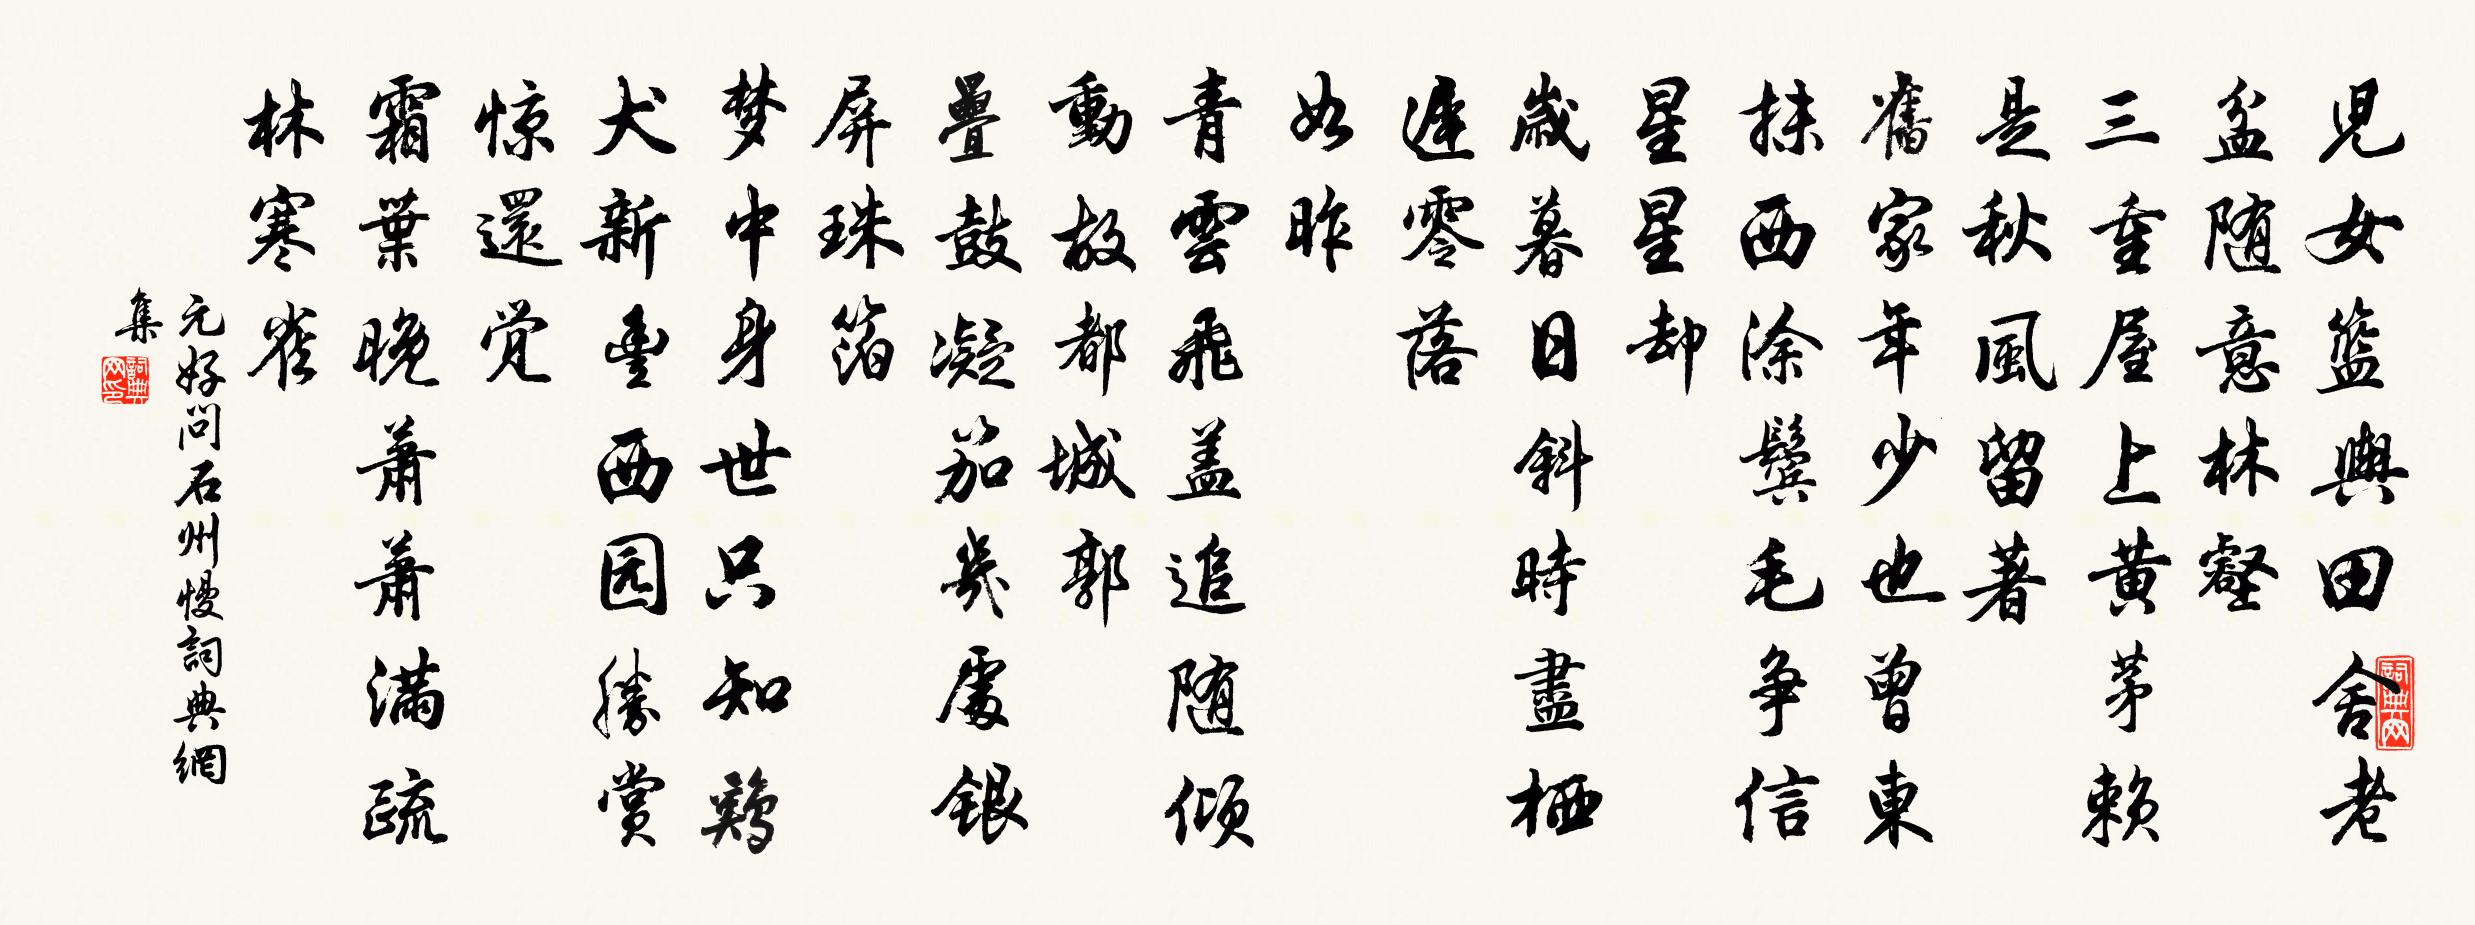 兒女籃輿田舍老
盆随意林壑
三重屋上黄茅賴
是秋風留著
舊家年少也曾東
抹西涂鬓毛争信
星星却
歲暮日斜時盡栖
遲零落
如昨
青雲飛盖追随傾
動故都城郭
疊鼓凝笳幾處銀
屏珠箔
梦中身世只知鷄
犬新豐西园勝賞
惊還觉
霜葉晚蕭蕭滿疏
林寒雀
元好问石州慢詞典網
集
詞典网
詞典网印